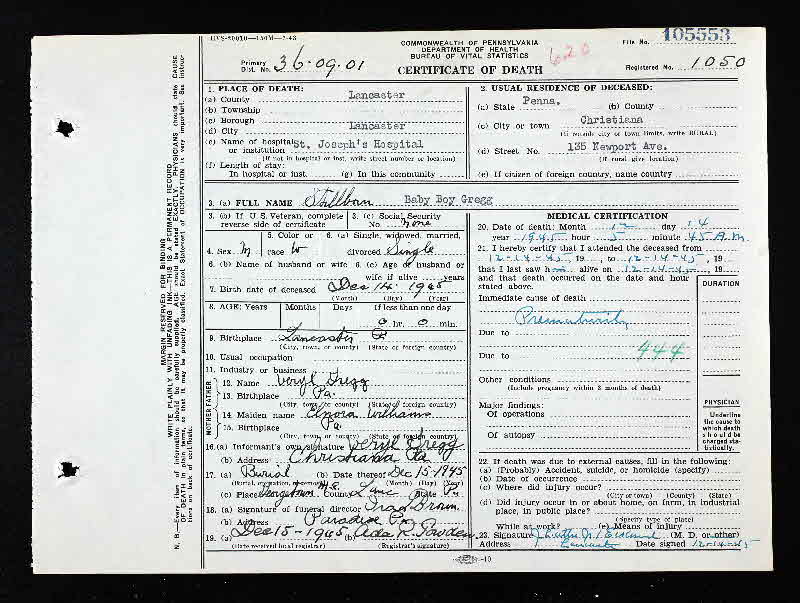 HVS-20010—150M—7-43
COMMONWEALTH OF PENNSYLVANIA
DEPARTMENT OF HEALTH
BUREAU OF VITAL STATISTICS
CERTIFICATE OF DEATH
Primary Dist. No. 36.09.01
620
File No. 105553
Registered No. 1050
1. PLACE OF DEATH:
(a) County Lancaster
(b) Township
(c) Borough
(d) City Lancaster
(e) Name of hospital or institution St. Joseph's Hospital
(If not in hospital or inst. write street number or location)
(f) Length of stay:
In hospital or inst. (g) In this community
2. USUAL RESIDENCE OF DECEASED:
(a) State Penna. (b) County
(c) City or town Christiana
(If outside city or town limits, write RURAL)
(d) Street No. 135 Newport Ave.
(If rural give location)
(e) If citizen of foreign country, name country
3. (a) FULL NAME Stillborn Baby Boy Gregg
3. (b) If U. S. Veteran, complete reverse side of certificate
3. (c) Social Security No. none
4. Sex M
5. Color or race W
6. (a) Single, widowed, married, divorced Single
6. (b) Name of husband or wife
6. (c) Age of husband or wife if alive years
7. Birth date of deceased Dec 14 1945
(Month) (Day) (Year)
8. AGE: Years Months Days If less than one day
0 hr. 0 min.
9. Birthplace Lancaster Pa
(City, town, or county) (State or foreign country)
10. Usual occupation
11. Industry or business
FATHER
12. Name Veryl Gregg
13. Birthplace Pa.
(City, town, or county) (State or foreign country)
MOTHER
14. Maiden name Elnora Williams
15. Birthplace Pa.
(City, town, or county) (State or foreign country)
16. (a) Informant's own signature Veryl Gregg
(b) Address Christiana Pa
17. (a) Burial (b) Date thereof Dec 15 1945
(Burial, cremation, or removal) (Month) (Day) (Year)
(c) Place Georgetown M.E. County Lanc State Pa
18. (a) Signature of funeral director Brown
(b) Address Paradise Pa
19. (a) Dec 15-1945 (b) Ada R.
(Date received local registrar) (Registrar's signature)
MEDICAL CERTIFICATION
20. Date of Death: Month 12 day 14
year 1945 hour 5 minute 45 A.M
21. I hereby certify that I attended the deceased from
12-14-45, 19 , to 12-14-45, 19
that I last saw h alive on 12-14-45, 19
and that death occurred on the date and hour stated above.
DURATION
Immediate cause of death
Prematurity
Due to
Due to 444
Other conditions
(Include pregnancy within 3 months of death)
Major findings:
Of operations
Of autopsy
PHYSICIAN
Underline the cause to which death should be charged statistically.
22. If death was due to external causes, fill in the following:
(a) (Probably) Accident, suicide, or homicide (specify)
(b) Date of occurrence
(c) Where did injury occur?
(City or town) (County) (State)
(d) Did injury occur in or about home, on farm, in industrial place, in public place?
(Specify type of place)
While at work? (e) Means of injury
23. Signature (M. D. or other)
Address Lancaster Date signed 12-14-45
10
MARGIN RESERVED FOR BINDING
WRITE PLAINLY WITH UNFADING INK—THIS IS A PERMANENT RECORD
N. B.—Every item of information should be carefully supplied. AGE should be stated EXACTLY. PHYSICIANS should state CAUSE
OF DEATH in plain terms, so that it may be properly classified. Exact Statement of OCCUPATION is very important. See instructions on back of certificate.